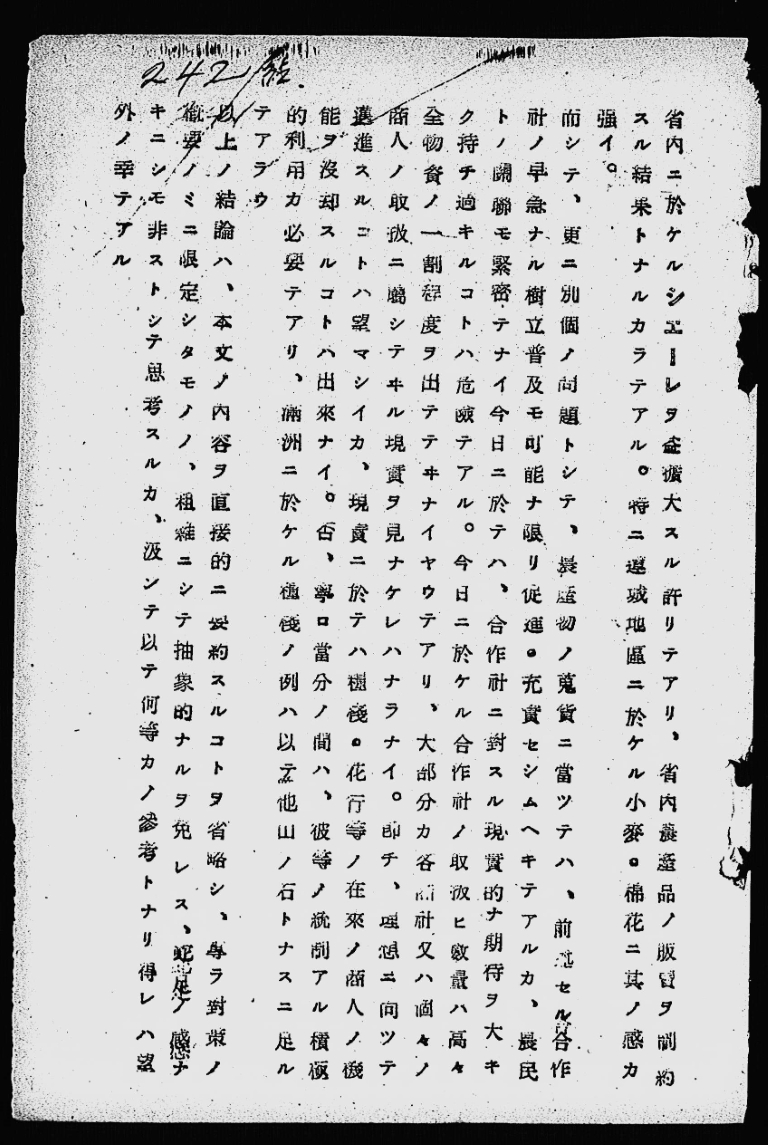 242 結.
省內ニ於ケルシエーレヲ益擴大スル許リテアリ、省內農產品ノ販賣ヲ制約
スル結果トナルカラテアル。特ニ運城地區ニ於ケル小麥。棉花ニ其ノ感カ
强イ。
而シテ、更ニ別個ノ問題トシテ、農產物ノ蒐貨ニ當ツテハ、前述セル合作
社ノ早急ナル樹立普及モ可能ナ限リ促進。充實セシムヘキテアルカ、農民
トノ關聯モ緊密テナイ今日ニ於テハ、合作社ニ對スル現實的ナ期待ヲ大キ
ク持チ過キルコトハ危險テアル。今日ニ於ケル合作社ノ取扱ヒ數量ハ高々
全物資ノ一割程度ヲ出テテヰナイヤウテアリ、大部分カ各商社又ハ個々ノ
商人ノ取扱ニ屬シテヰル現實ヲ見ナケレハナラナイ。卽チ、理想ニ向ツテ
邁進スルコトハ望マシイカ、現實ニ於テハ糧棧。花行等ノ在來ノ商人ノ機
能ヲ沒却スルコトハ出來ナイ。否、寧ロ當分ノ間ハ、彼等ノ統制アル積極
的利用カ必要テアリ、滿洲ニ於ケル糧棧ノ例ハ以テ他山ノ石トナスニ足ル
テアラウ
以上ノ結論ハ、本文ノ內容ヲ直接的ニ要約スルコトヲ省略シ、專ラ對策ノ
槪要ノミニ限定シタモノノ、粗雜ニシテ抽象的ナルヲ免レス、蛇足ノ感ナ
キニシモ非ストシテ思考スルカ、汲ンテ以テ何等カノ參考トナリ得レハ望
外ノ幸テアル